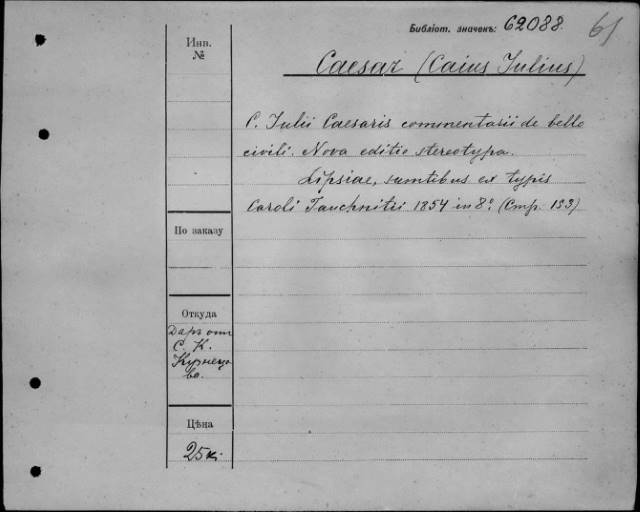 Библіот. значекъ: 62088. 61
Инв.
№
Caesar (Caius Iulius)
C. Iulii Caesaris commentarii de bello
civili. Nova editio stereotypa.
Lipsiae, sumtibus et typis
Caroli Tauchnitii 1854 in 8º. (Стр. 153)
По заказу
Откуда
Даръ отъ
С. К.
Кузнецо
ва.
Цѣна
25 к.